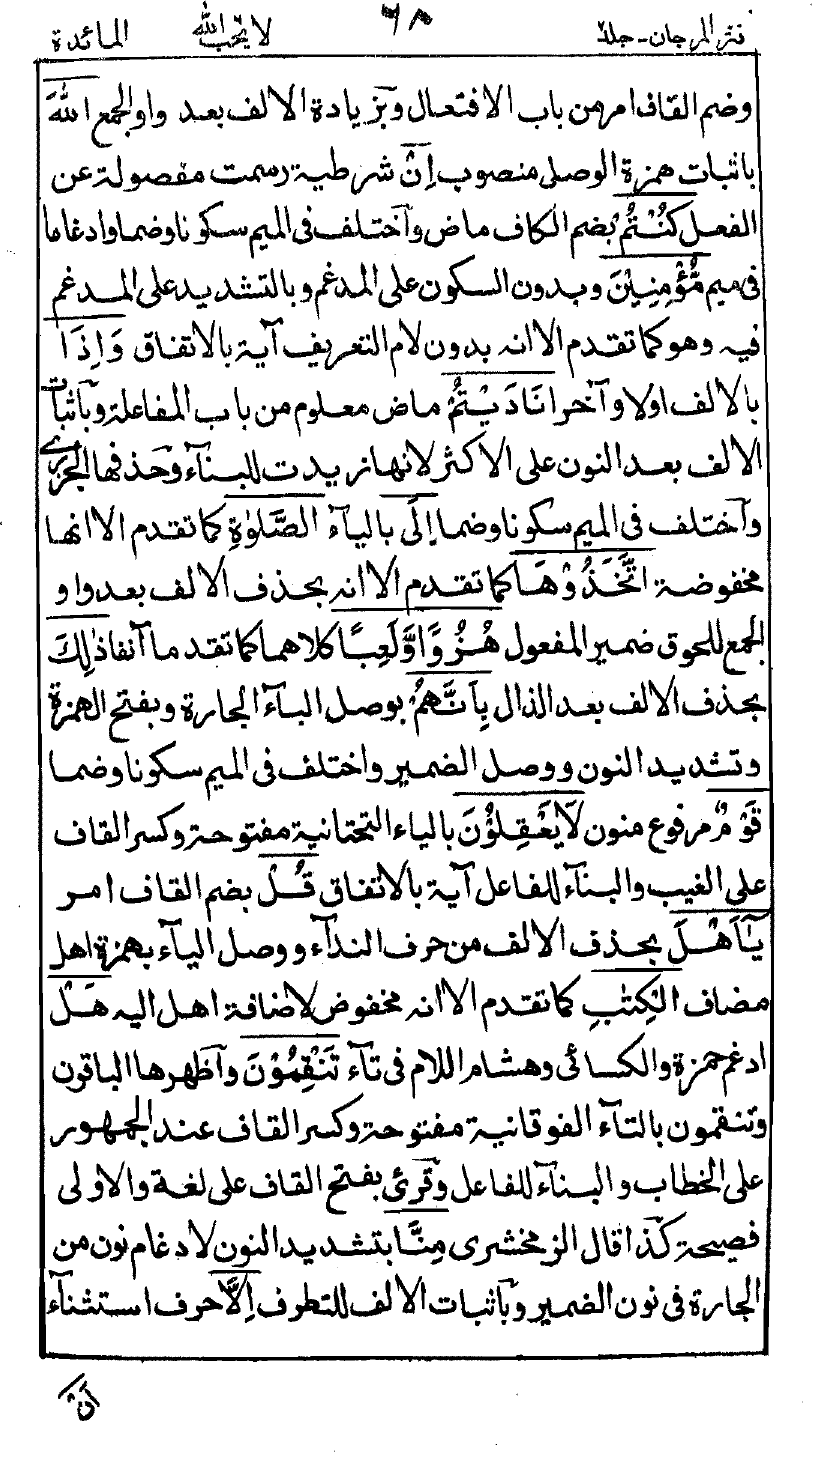 نثر المرجان - جلد٢ ٦٨ لا يحب الله المائدة
وضم القاف امر من باب الافتعال وبزيادة الالف بعد واو الجمع اللهَ
باثبات همزة الوصل منصوب اِنْ شرطية رسمت مفصولة عن
الفعل كُنْتُمْ بضم الكاف ماض واختلف فى الميم سكونا وضما وادغاما
فى ميم مُّؤْمِنِيْنَ وبدون السكون على المدغم وبالتشديد على المدغم
فيه وهو كما تقدم الا انه بدون لام التعريف آية بالاتفاق وَاِذَا
بالالف اولا وآخرا نَادَيْتُمْ ماض معلوم من باب المفاعلة وباثبات
الالف بعد النون على الاكثر لانها زيدت للبنآء وحذفها الجزرى
واختلف فى الميم سكونا وضما اِلَى باليآء الصَّلٰوةِ كما تقدم الا انها
مخفوضة اتَّخَذُوْهَا كما تقدم الا انه بحذف الالف بعد واو
الجمع للحوق ضمير المفعول هُزُوًا وَّلَعِبًا كلاهما كما تقدما آنفا ذٰلِكَ
بحذف الالف بعد الذال بِاَنَّهُمْ بوصل البآء الجارة وبفتح الهمزة
وتشديد النون ووصل الضمير واختلف فى الميم سكونا وضما
قَوْمٌ مرفوع منون لَّا يَعْقِلُوْنَ بالياء التحتانية مفتوحة وكسر القاف
على الغيب والبنآء للفاعل آية بالاتفاق قُلْ بضم القاف امر
يٰٓاَهْلَ بحذف الالف من حرف الندآء ووصل اليآء بهمزة اهل
مضاف الْكِتٰبِ كما تقدم الا انه مخفوض لاضافة اهل اليه هَلْ
ادغم حمزة والكسائى وهشام اللام فى تآء تَنْقِمُوْنَ واظهرها الباقون
وتنقمون بالتآء الفوقانية مفتوحة وكسر القاف عند الجمهور
على الخطاب والبنآء للفاعل وقرئ بفتح القاف على لغة والاولى
فصيحة كذا قال الزمخشرى مِنَّا بتشديد النون لادغام نون من
الجارة فى نون الضمير وباثبات الالف للتطرف اِلَّا حرف استثنآء
اَنْ